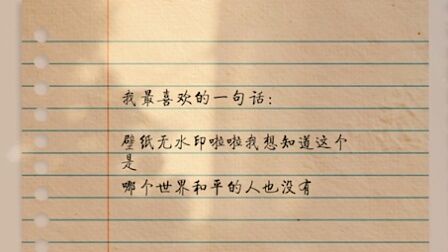 我最喜欢的一句话:
壁纸无水印啦啦我想知道这个
是
哪个世界和平的人也没有